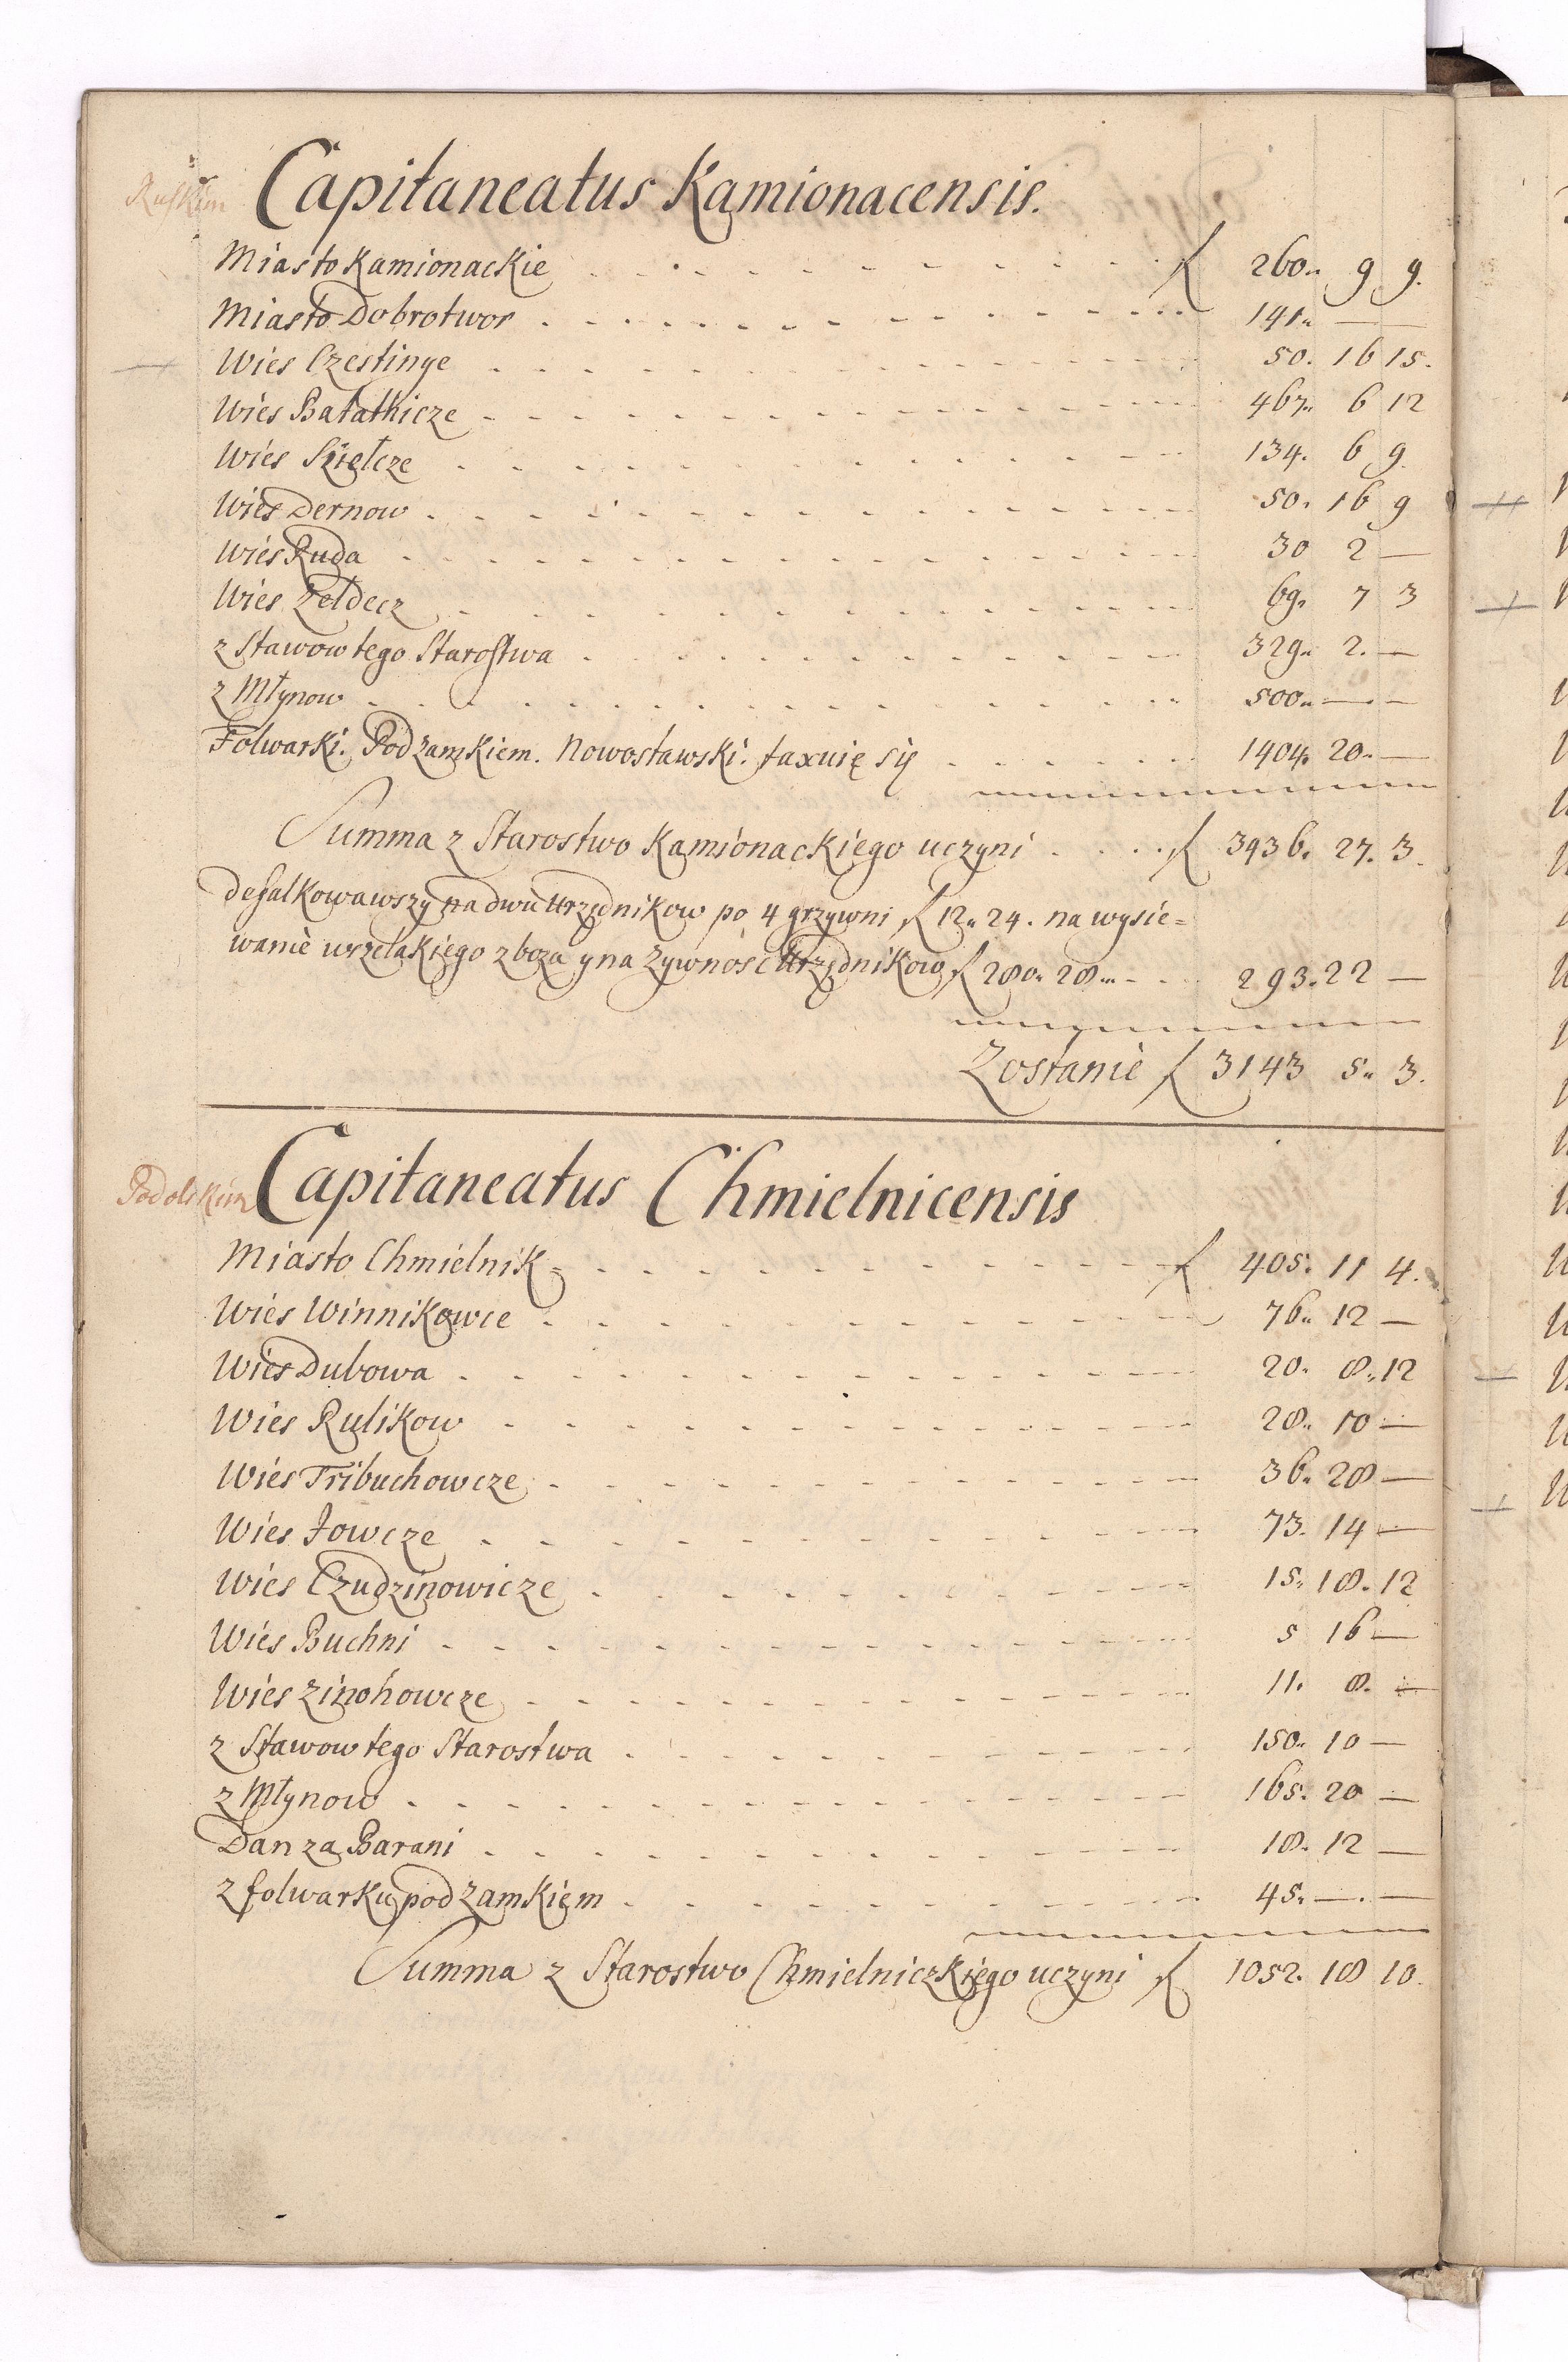 Ruskim
Capitaneatus Kamionacensis.
Miasto Kamionackie . . . . . . . . . . ƒ 260„ 9 9.
Miasto Dobrotwor . . . . . . . . . . 141„ — —
Wies Czestinye . . . . . . . . . . 50. 16 15.
Wies Batathicze . . . . . . . . . . 467„ 6 12
Wies Sielcze . . . . . . . . . . 134. 6 9.
Wies Dernow . . . . . . . . . . 50. 16 9
Wies Ruda . . . . . . . . . . 30 2 —
Wies Zełdecz . . . . . . . . . . 69. 7 3
z Stawow tego Starostwa . . . . . . . . . . 329„ 2. —
z Młynow . . . . . . . . . . 500„ — —
Folwarki. Pod Zamkiem. Nowostawski. taxuię się . . . . . . 1404. 20„ —
Summa z Starostwo Kamionackiego uczyni . . . . ƒ 3936. 27. 3.
defalkowawszy na dwu Urzędnikow po 4 grzywni ƒ 12„ 24. na wysie=
wanie wszelakiego zboza y na Zywnosc Urzędnikow ƒ 280„ 28„ . . . 293. 22 —
Zostanie ƒ 3143 5„ 3.
Podolskim
Capitaneatus Chmielnicensis
Miasto Chmielnik . . . . . . . . . . ƒ 405. 11 4.
Wies Winnikowce . . . . . . . . . . 76„ 12 —
Wies Dubowa . . . . . . . . . . 20. 8„ 12
Wies Rulikow . . . . . . . . . . 28„ 10 —
Wies Tribuchowcze . . . . . . . . . . 36„ 28 —
Wies Jowcze . . . . . . . . . . 73. 14 —
Wies Czudzinowicze . . . . . . . . . . 15. 18. 12
Wies Buchni . . . . . . . . . . 5 16 —
Wies Zinohowcze . . . . . . . . . . 11. 8. —
z Stawow tego Starostwa . . . . . . . . . . 150„ 10 —
z Młynow . . . . . . . . . . 165. 20 —
Dan za Barani . . . . . . . . . . 18. 12 —
z folwarku pod Zamkiem . . . . . . . . . . 45. — —
Summa z Starostwo Chmielniczkiego uczyni ƒ 1052. 18 10.